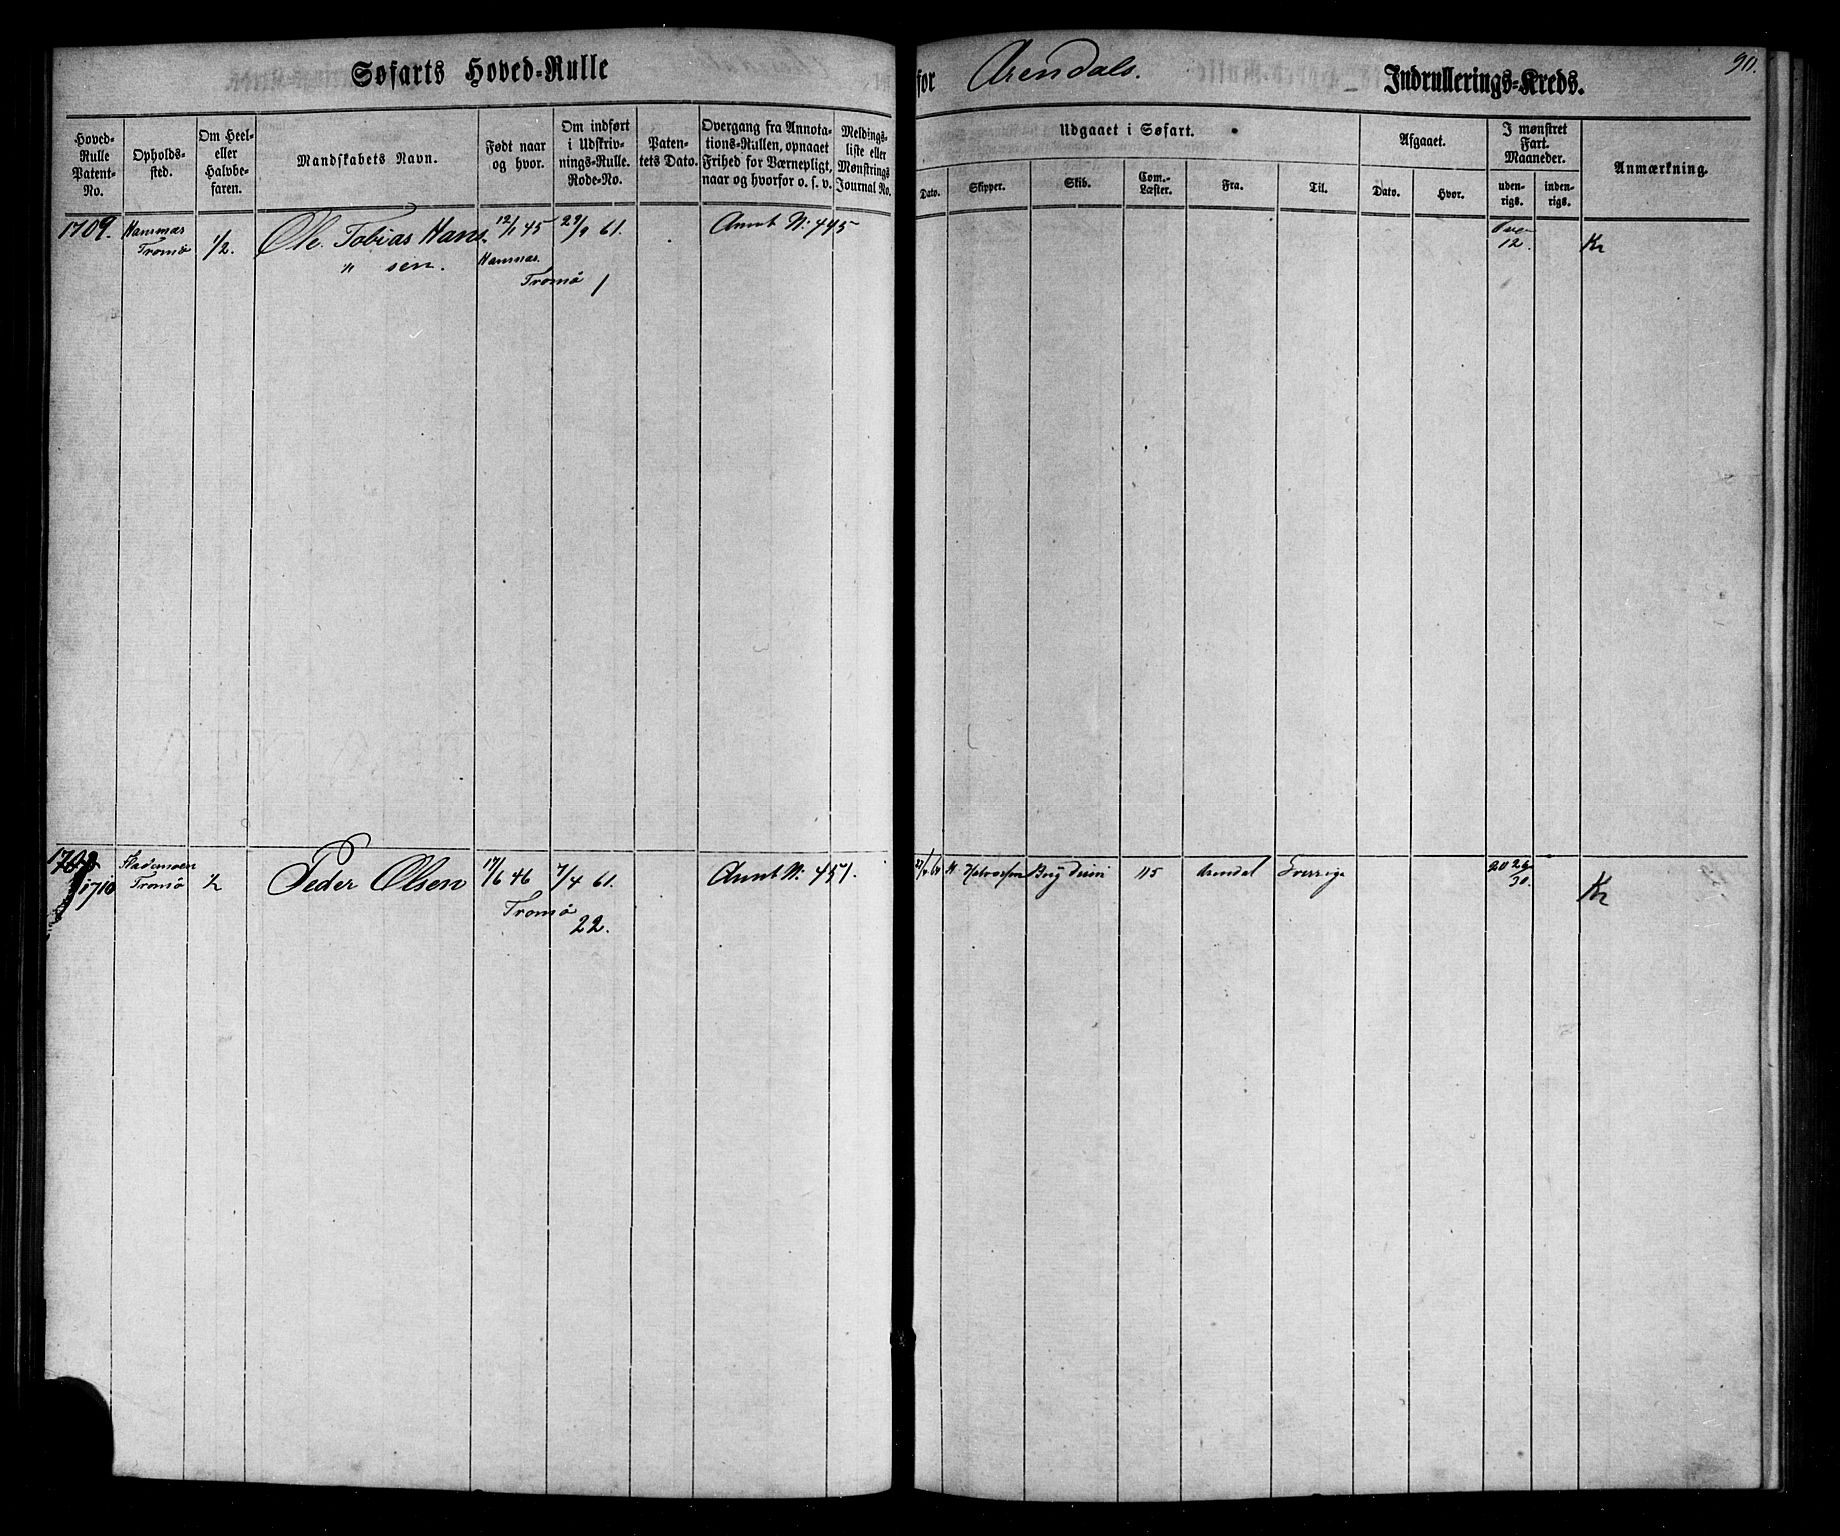 Søfarts Hoved-Rulle
for Arendals. Indrullerings-Kreds.
90.
Hoved-
Rulle
Patent-
No.
Opholds-
sted.
Om Heel-
eller
Halvbe-
faren.
Mandskabets Navn.
Født naar
og hvor.
Om indført
i Udskriv-
nings-Rulle.
Rode-No.
Paten-
tets Dato.
Overgang fra Annota-
tions-Rullen, opnaaet
Frihed for Værnepligt,
naar og hvorfor o. s. v.
Meldings-
liste eller
Mønstrings
Journal No.
Udgaaet i Søfart.
Dato.
Skipper.
Skib.
Com.-
Læster.
Fra.
Til.
Afgaaet.
Dato.
Hvor.
I mønstret
Fart.
Maaneder.
uden-
rigs.
inden-
rigs.
Anmærkning.
1709.
Hammas
Tromø
1/2.
Ole Tobias Hans
" sen.
12/1 45
Hammas.
Tromø
29/9 61.
1
Annt N: 445
12.
Kr
1710
Tromø
1/2
Peder Olsen
17/6 46
Tromø
7/4 61.
22.
Annt N: 451.
Halvorsen
Brig
115
Arendal
Sverrige
20 26
30.
Kr